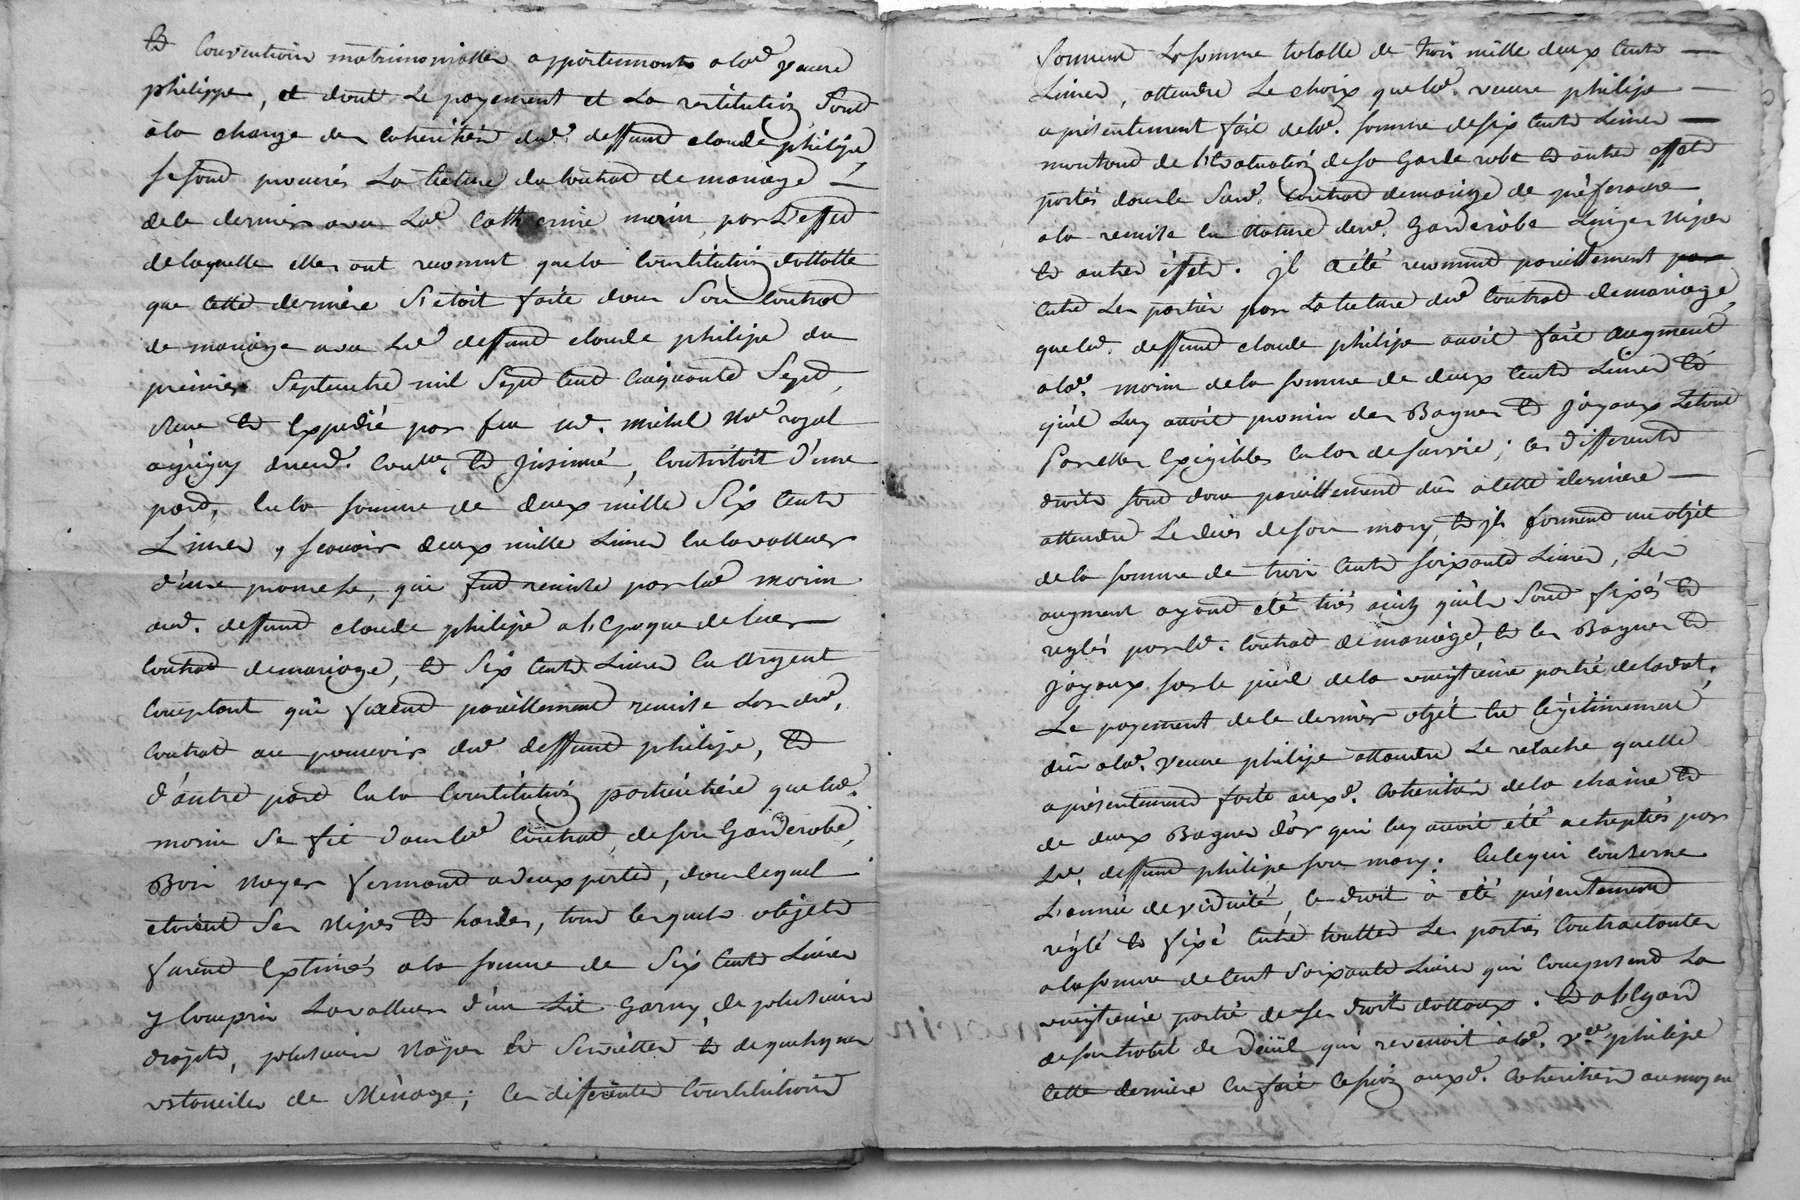 et Conventions matrimonialles appartenants a lad. veuve
philippe, et dont Le payement et La restitution Sont
à la charge des coheritiers dud. deffunt claude philipe,
se sont procurés La lecture du Contrat de mariage —
de ce dernier avec Lad. Catherine morin, par L'effet
de laquelle elles ont reconnut que la Constitution dottalle
que cette dernière s'etoit faite dans Son Contrat
de mariage avec Led. deffunt claude philipe du
premier Septembre mil Sept Cent Cinquante Sept,
Reçu et Expedié par feu me. michel Nre. royal
Controllé et jnsinué, Consistoit d'une
part, En la somme de deux mille Six Cents
Livres, scavoir deux mille Livres En la valleur
d'une promesse, qui fut remise par lad. morin
aud. deffunt claude philipe a l'Epoque de leur
Contrat de mariage, et Six Cents Livres En Argent
Comptant qui furent pareillement remise Lors dud.
Contrat au pouvoir dud. deffunt philipe, et
d'autre part En la Constitution particulière que lad.
morin Se fit dans led. Contrat, de son Garderobe,
Bois Noyer fermant a deux portes, dans lequel
etoient Ses Nipes et hardes, tous lesquels objets
furent Extimés a la somme de Six Cents Livres
y Compris La valleur d'un Lit Garny, de plusieurs
draps, plusieurs Napes et Serviettes et de quelques
ustanciles de Ménage; Ces differentes Constitutions
forment La somme totalle de trois mille deux Cents —
Livres, attendu Le choix que lad. veuve philipe —
a présentement fait de lad. somme de six Cents Livres —
montant de l'Evaluation de sa Garde robe et autres effets
portés dans le Susd. Contrat de mariage de préferance
a la remise En Nature desd. Garderobe Linges Nipes
et autres effets. jl a été reconnut pareillement
Entre Les parties par La lecture dud. Contrat de mariage,
que led. deffunt claude philipe avoit fait augment
a lad. morin de la somme de deux Cents Livres et
qu'il Luy avoit promis des Bagues et Joyaux Le tout
par elles Exigibles En Cas de survie; Ces differents
droits sont donc pareillement dûs a cette dernière —
attendu Le décès de son mary, et jls forment un objet
de la somme de trois Cents soixante Livres, Les
augment ayant été tirés ainsy qu'ils Sont fixés et
reglés par led. Contrat de mariage, et les Bagues et
Joyaux sur le pied de la vingtieme partie de la dot.
Le payement de ce dernier objet Est légitimement
dû a lad. veuve philipe attendu Le relache quelle
a présentement faite auxd. Coheritiers de la chaine et
de deux Bagues d'or qui luy avoit été acheptés par
Led. deffunt philipe son mary. En ce qui Concerne
L'année de viduité, ce droit à été présentement
réglé et fixé Entre touttes Les parties Contractantes
a la somme de Cent Soixante Livres qui Comprend La
vingtieme partie de ses droits dottaux. Et a l'Egard
de son habit de Deüil qui revenoit à lad. ve. philipe
Cette dernière En fait auxd. Coheritiers au moyen